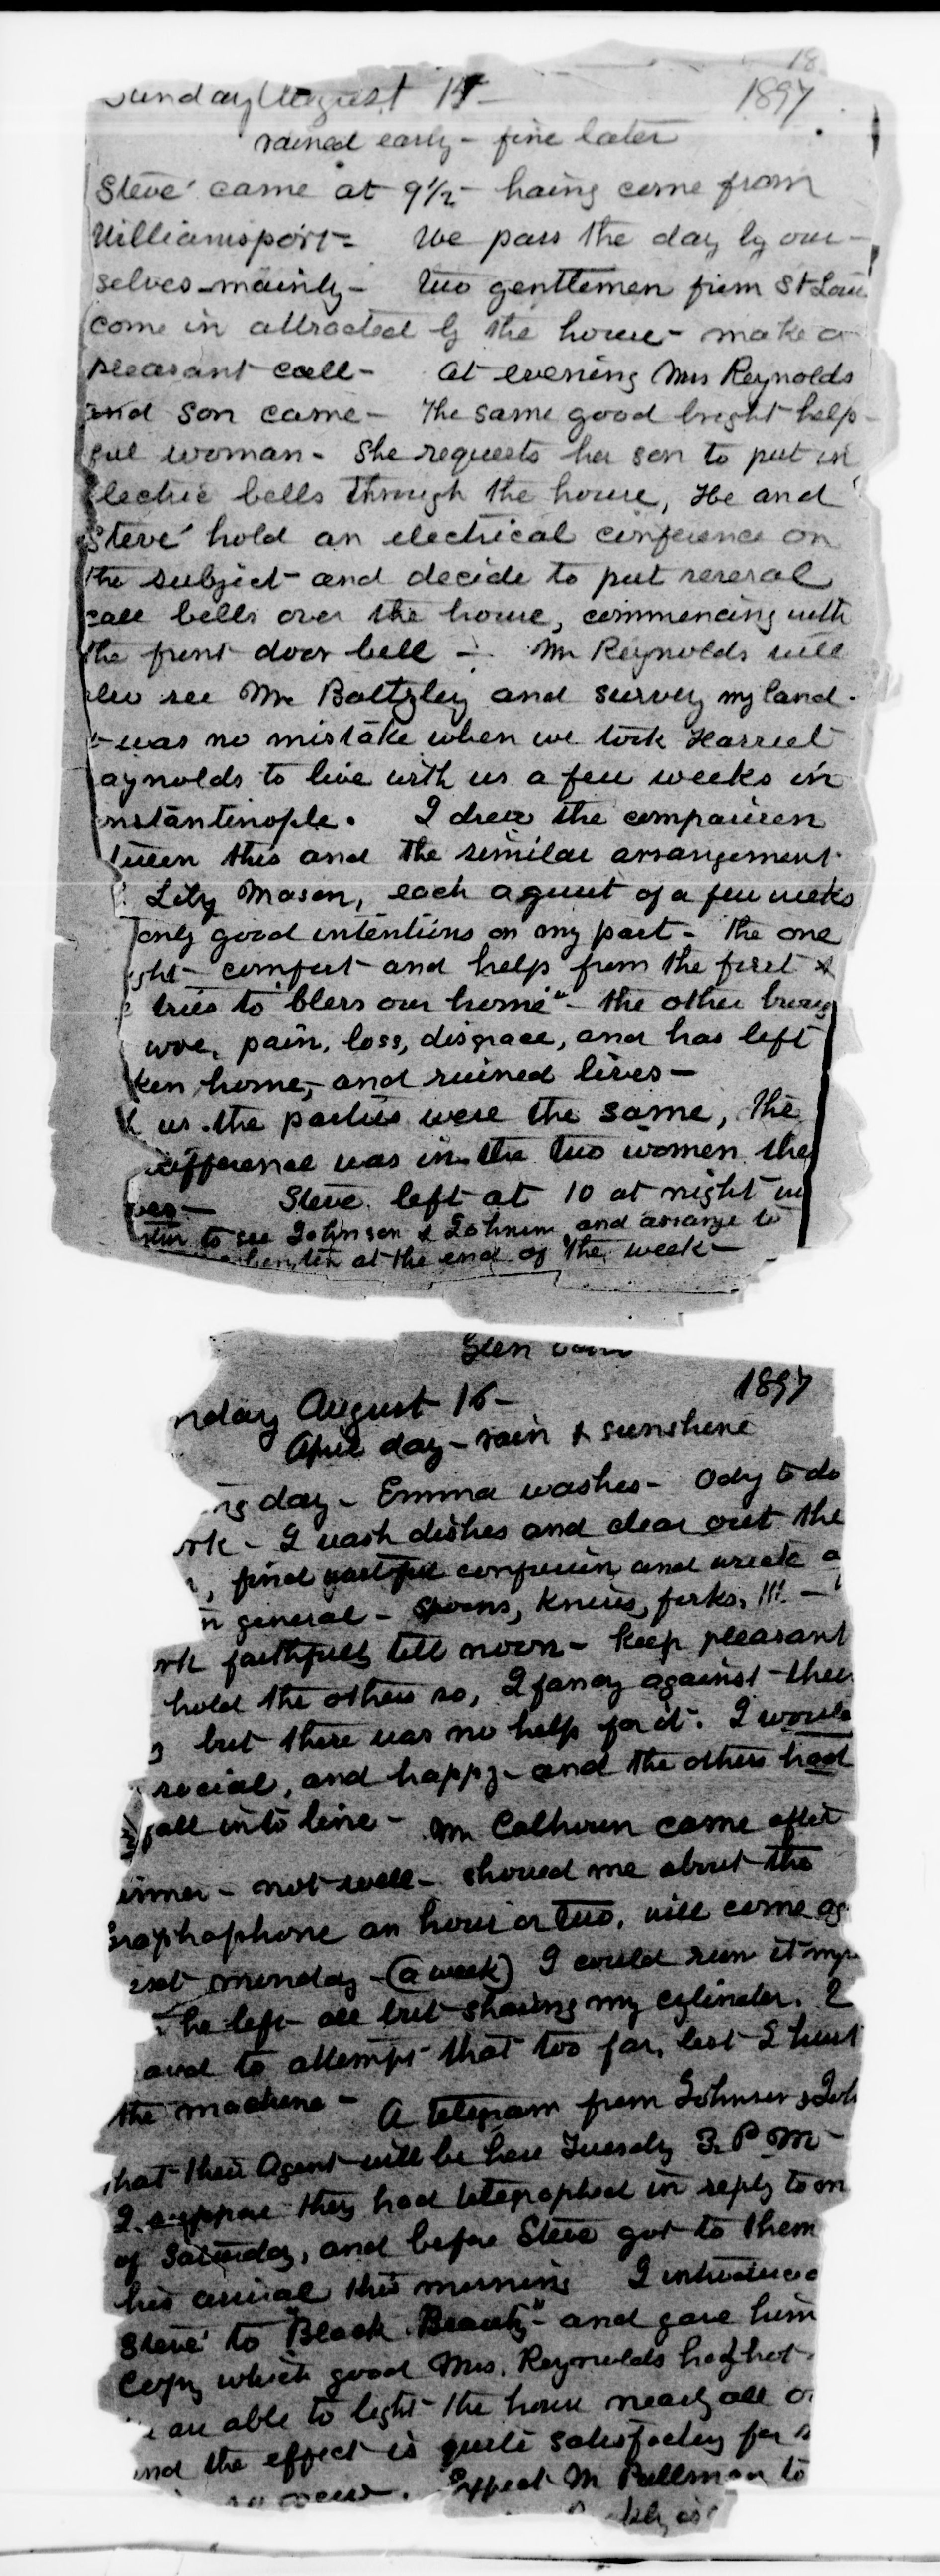 18
Sunday August 15 - 1897
rained early - fine later
"Steve" came at 9½ - haing come from
Williamsport - We pass the day by our-
selves - mainly - two gentlemen from St Lou
come in attracted by the house - make a
pleasant call - at evening Mrs Reynolds
and son came - The same good bright help-
ful woman - She requests her son to put in
Electric bells through the house, He and
Steve' hold an electrical conference on
the subject - and decide to put several
call bells over the house, commencing with
the front door bell - Mr Reynolds will
also see Mr Baltzley and survey my land -
t was no mistake when we took Harriet
aynolds to live with us a few weeks in
nstantinople. I drew the comparison
tween this and the similar arrangement
Lily Mason, each a guest of a few weeks
only good intentions on my part - The one
ght comfort and help from the first &
tries to "bless our home" - the other brung
woe, pain, loss, disgrace, and has left
ken home, and ruined lives -
us the parties were the same, the
difference was in the two women the
Steve left at 10 at night
to see Johnson & Johnson and arrange to
at the end of the week -
Glen
nday August 16 - 1897
April day - rain & sunshine
ng day - Emma washes - Ody to do
rk - I wash dishes and clear out the
, find confusion and wreck a
n general - Spoons, Knives, forks, !!! -
rk faithfully till noon - keep pleasant
hold the others so, I fancy against their
g but there was no help for it. I would
social, and happy - and the others had
fall into line - Mr Calhoun came after
inner - not well - showed me about the
Graphophone an hour or two, will come ag
ext monday - (a week) I could run it my
he left all but shaving my cylinder. I
aid to attempt that too far, lest I hurt
the machine - A telegram from Johnson & Joh
that their Agent will be here Tuesday 3. P M -
I suppose they had telegraphed in reply to m
of Saturday, and before Steve got to them
his arrival this morning I introduced
Steve' to "Black Beauty" - and gave him
Copy which good Mrs. Reynolds had
are able to light the house nearly all o
and the effect is quite satisfactory for
Expect Mr Pullman to